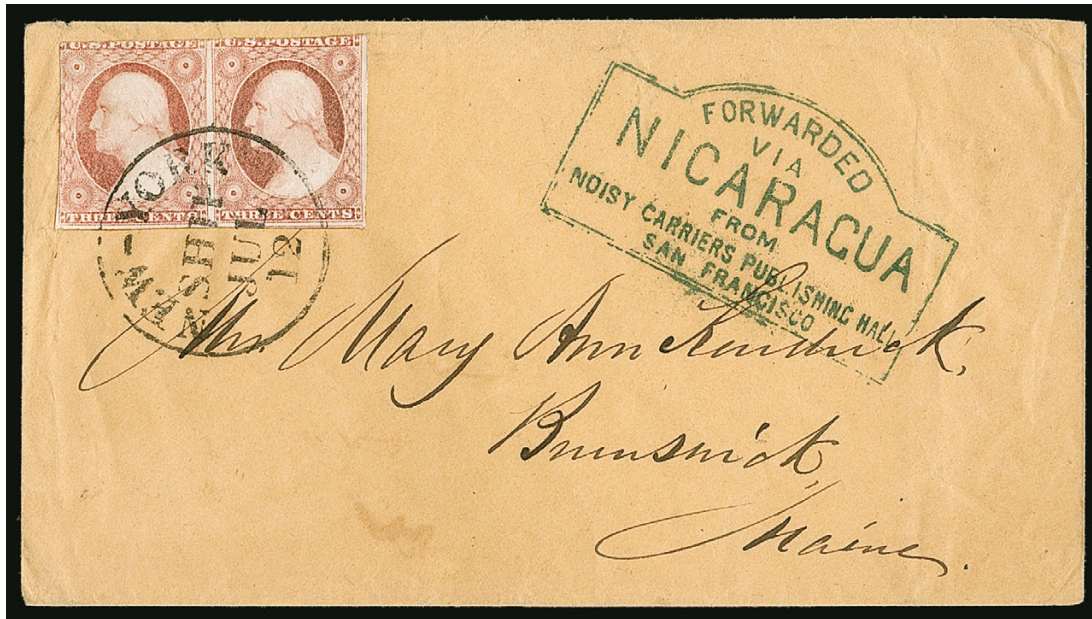 U.S. POSTAGE U.S. POSTAGE
THREE CENTS THREE CENTS
NEW-YORK
SHIP
JUL
12
FORWARDED
VIA
NICARAGUA
FROM
NOISY CARRIERS PUBLISHING HALL
SAN FRANCISCO
Mrs. Mary Ann Kendrick,
Brunswick,
Maine.